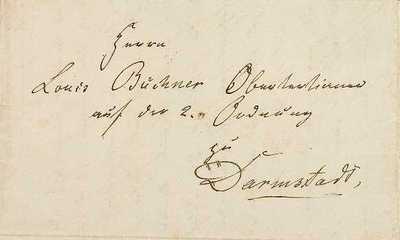 Herrn
Louis Büchner Obertertianer
auf der 2. Ordnung
zu
Darmstadt,